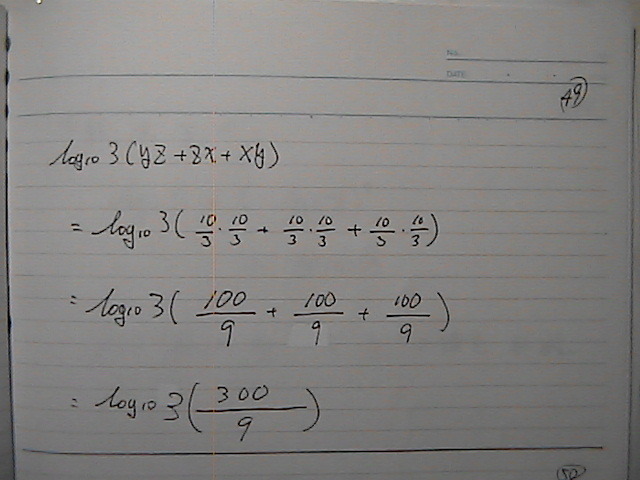 No.
DATE
49
log₁₀ 3(yz + zx + xy)
= log₁₀ 3(10/3 · 10/3 + 10/3 · 10/3 + 10/3 · 10/3)
= log₁₀ 3(100/9 + 100/9 + 100/9)
= log₁₀ 3(300/9)
50